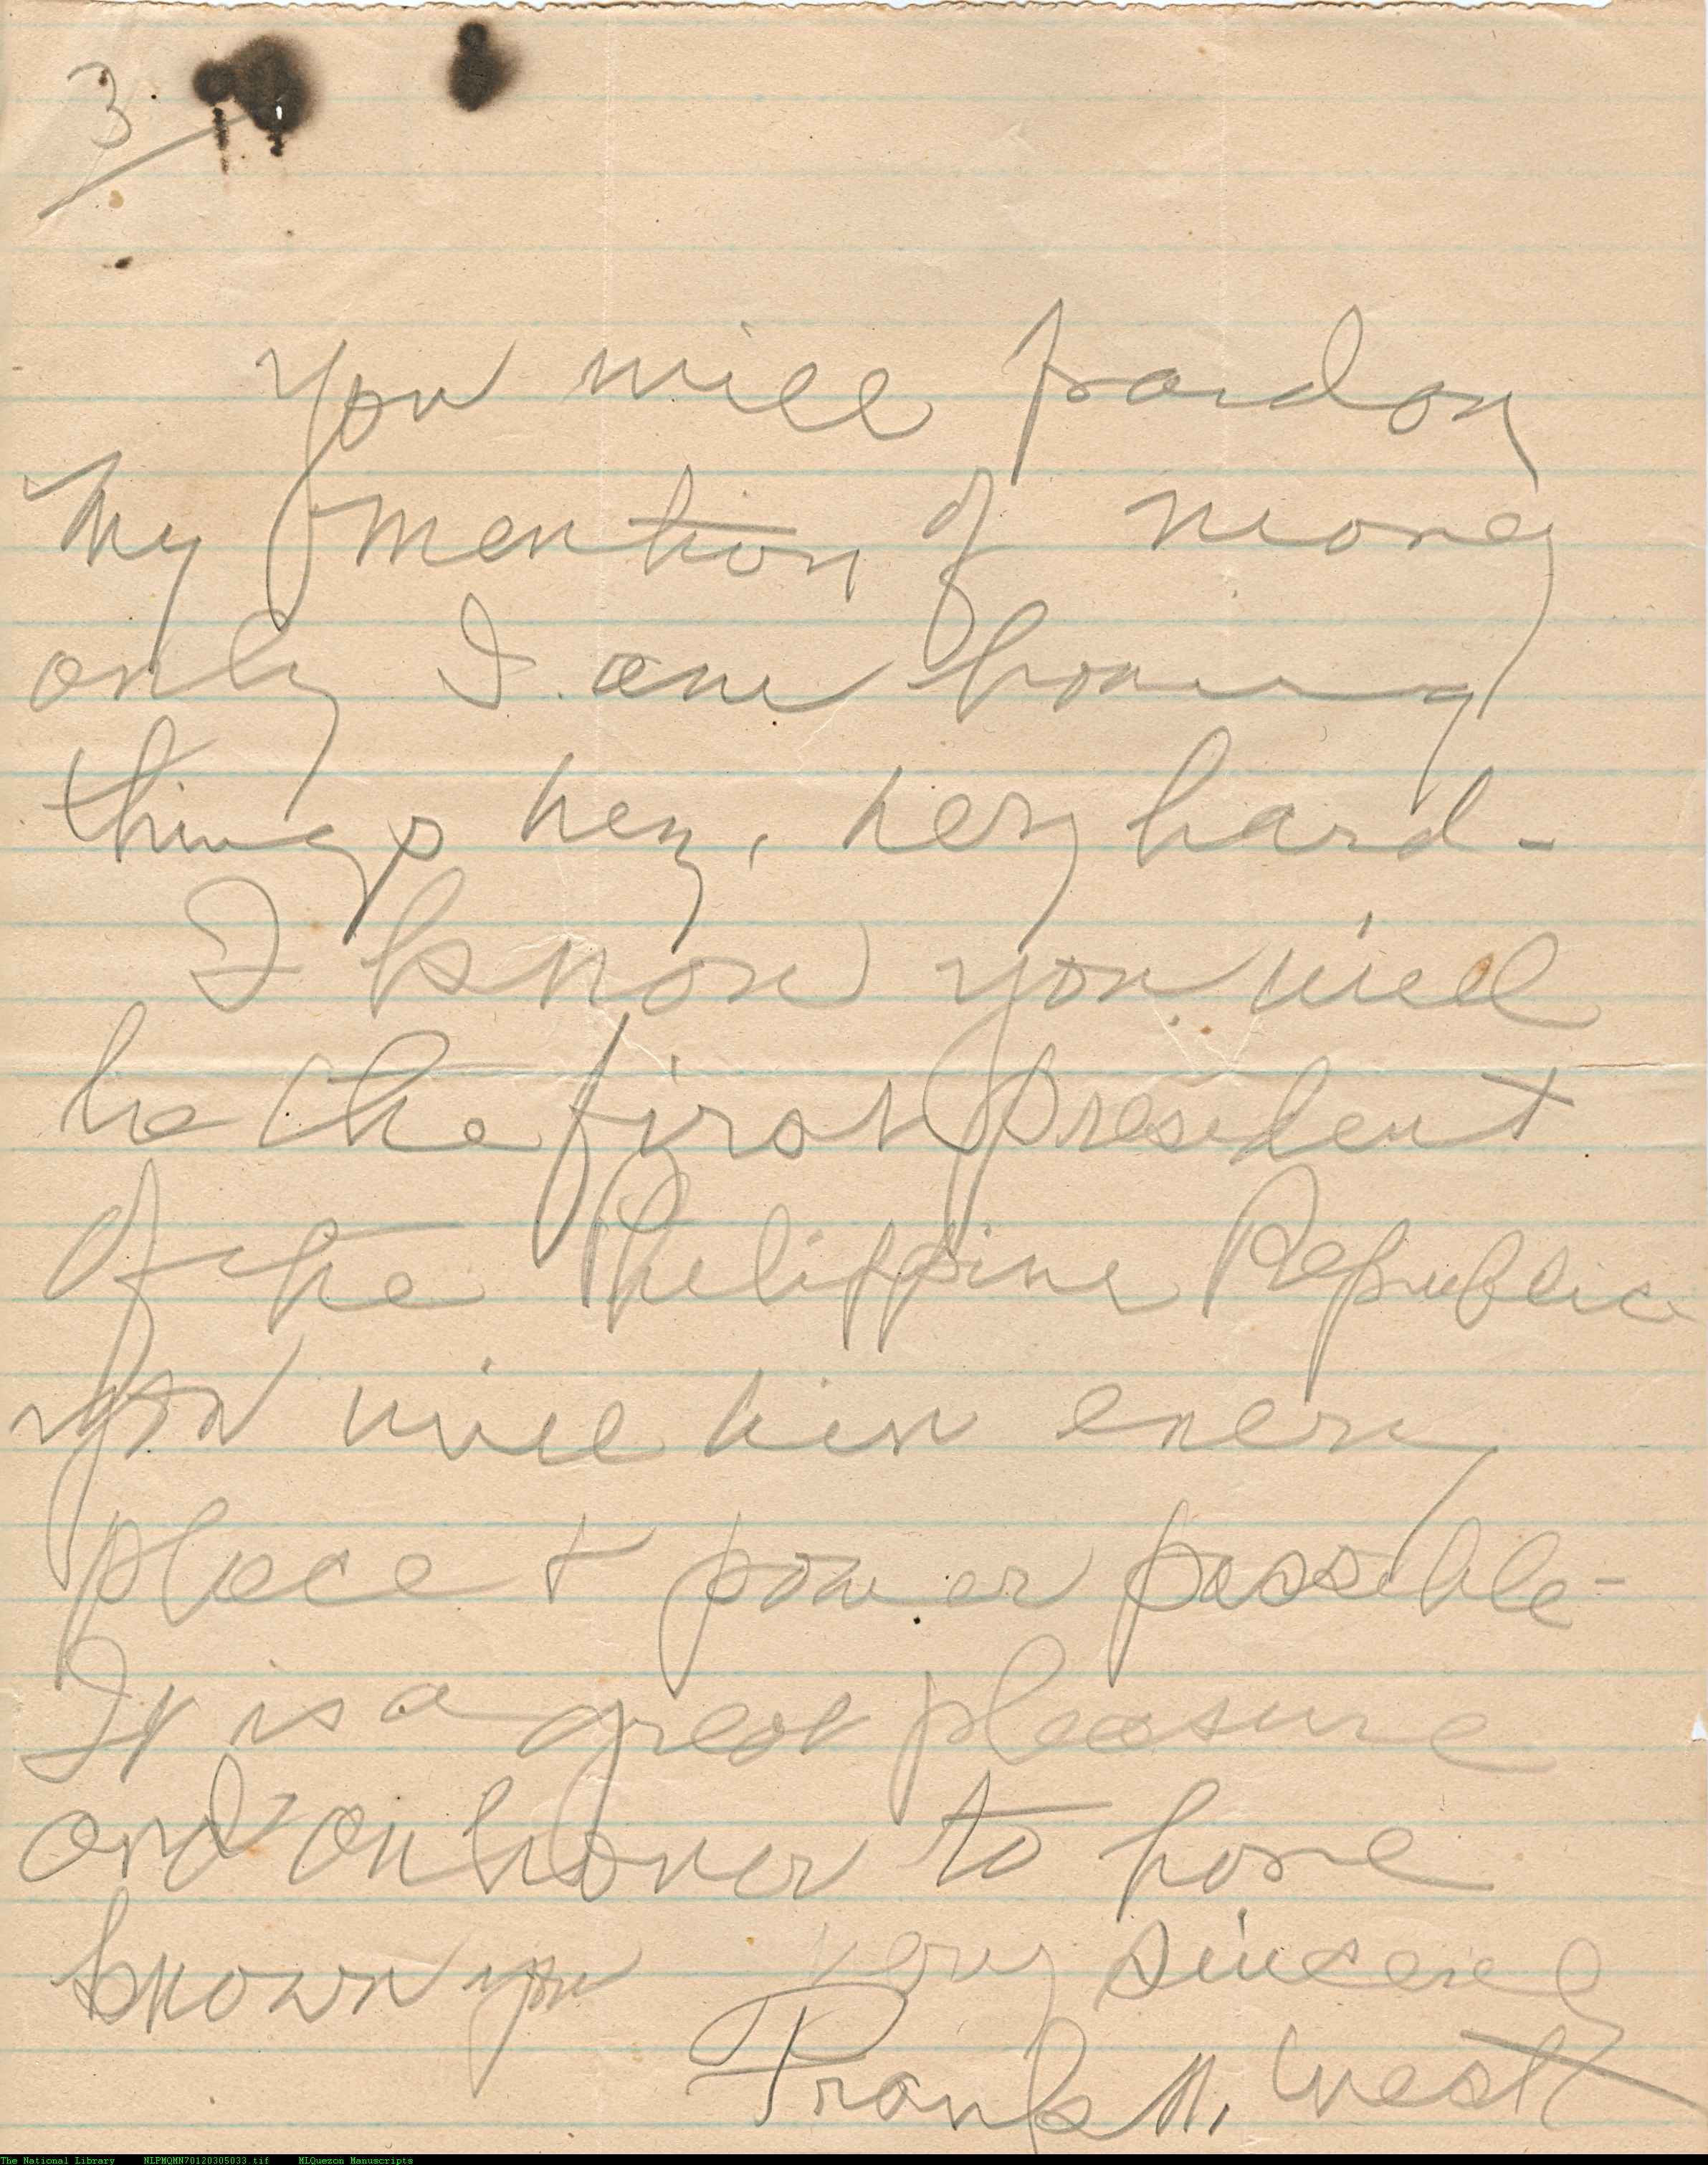 3
You will pardon
my mention of money
only I am having
things very, very hard -
I know you will
be the first president
of the Philippine Republic
you will win every
place & power possible -
It is a great pleasure
and an honor to have
known you very sincerely
Frank N. West
The National Library NLPMQMN70120305033.tif MLQuezon Manuscripts